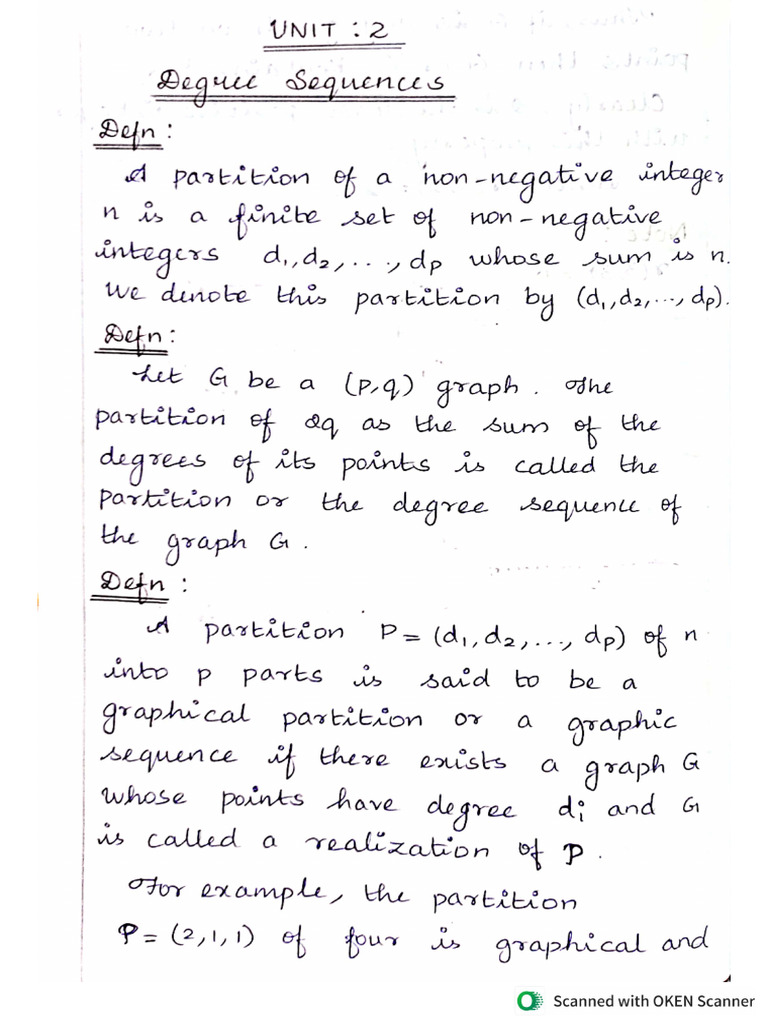 UNIT : 2
Degree Sequences
Defn :
A partition of a non-negative integer
n is a finite set of non-negative
integers d₁, d₂, ..., dp whose sum is n.
We denote this partition by (d₁, d₂, ..., dp).
Defn :
Let G be a (p,q) graph. The
partition of 2q as the sum of the
degrees of its points is called the
partition or the degree sequence of
the graph G.
Defn :
A partition P = (d₁, d₂, ..., dp) of n
into p parts is said to be a
graphical partition or a graphic
sequence if there exists a graph G
whose points have degree di and G
is called a realization of P.
For example, the partition
P = (2,1,1) of four is graphical and
Scanned with OKEN Scanner